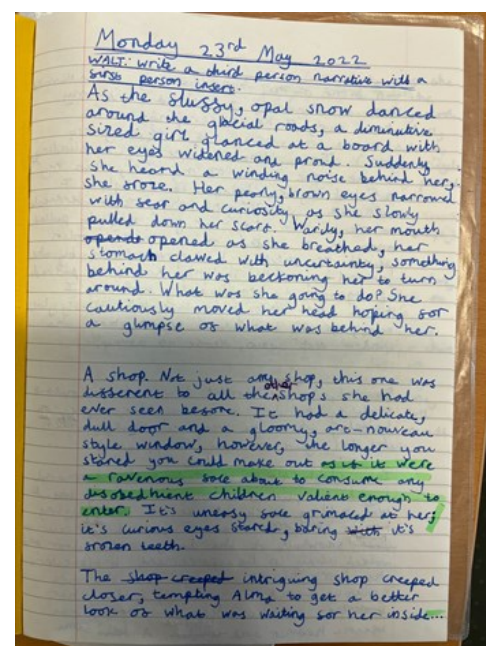 Monday 23rd May 2022
WALT: write a third person narrative with a
first person insert.
As the slussy, opal snow danced
around the glacial roads, a diminutive
sized girl glanced at a board with
her eyes widened and proud. Suddenly
she heard a winding noise behind her,
she froze. Her pearly, brown eyes narrowed
with fear and curiosity as she slowly
pulled down her scarf. Wardy, her mouth
opends opened as she breathed, her
stomach clawed with uncertainty, something
behind her was beckoning her to turn
around. What was she going to do? She
cautiously moved her head hoping for
a glimpse of what was behind her.
A shop. Not just any shop, this one was
different to all the other shops she had
ever seen before. It had a delicate,
dull door and a gloomy, arc-nouveau
style window, however, the longer you
stared you could make out as if it were
a ravenous face about to consume any
disobedhient children valient enough to
enter. It's uneasy face grimaced at her;
it's curious eyes stared, baring with it's
frozen teeth.
The shop creeped intriguing shop creeped
closer, tempting Alma to get a better
look of what was waiting for her inside...